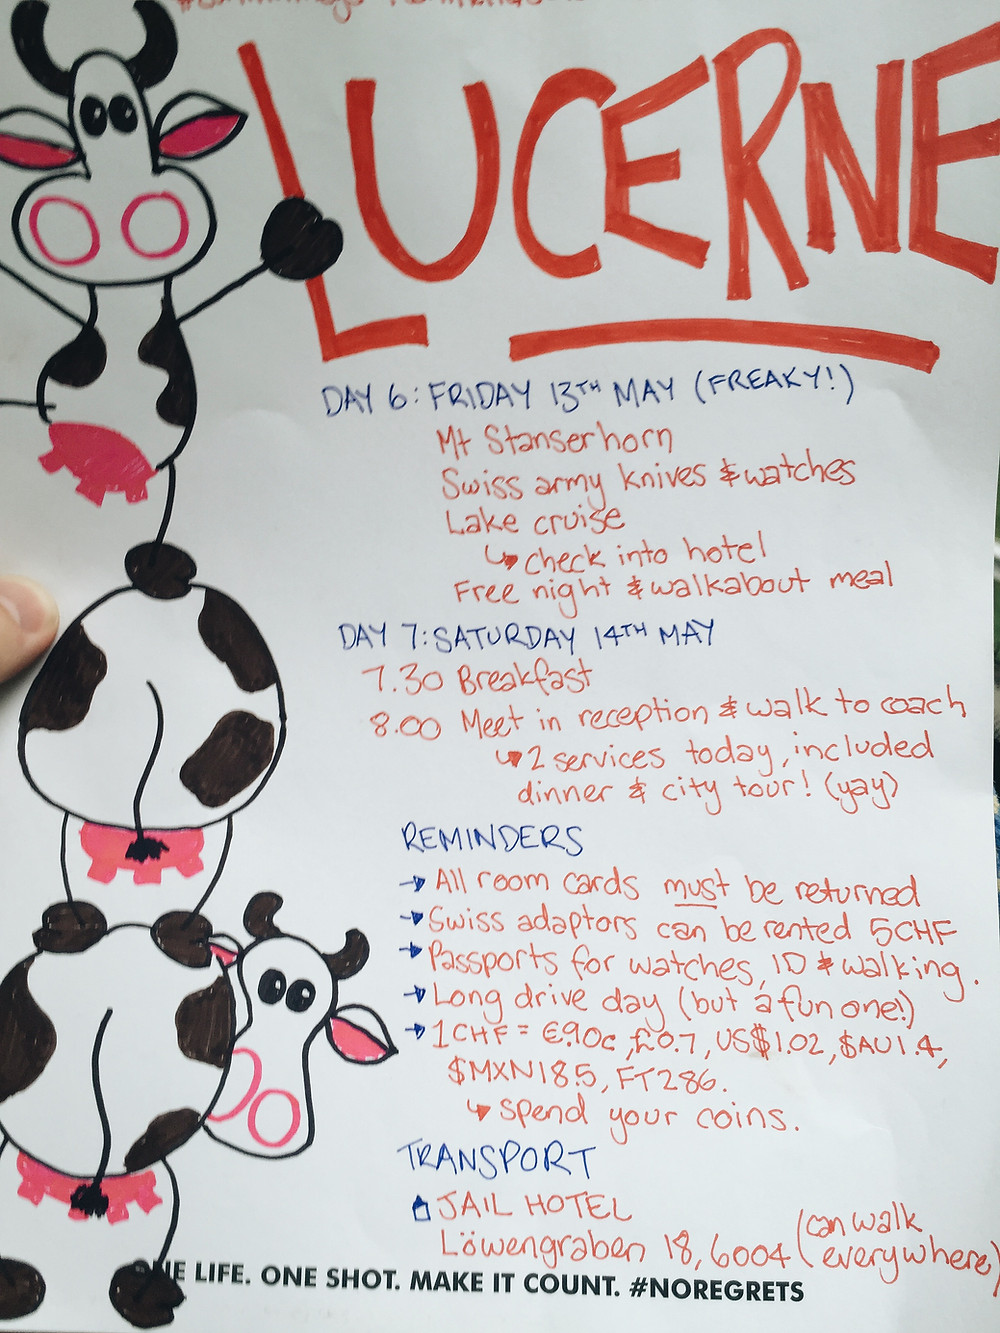 LUCERNE
DAY 6: FRIDAY 13TH MAY (FREAKY!)
Mt Stanserhorn
Swiss army knives & watches
Lake cruise
↳ check into hotel
Free night & walkabout meal
DAY 7: SATURDAY 14TH MAY
7.30 Breakfast
8.00 Meet in reception & walk to coach
↳ 2 services today, included
dinner & city tour! (yay)
REMINDERS
→ All room cards must be returned
→ Swiss adaptors can be rented 5CHF
→ Passports for watches, ID & walking.
→ Long drive day (but a fun one!)
→ 1CHF = €.90c, £0.7, US$1.02, $AU1.4,
$MXN18.5, FT286.
↳ spend your coins.
TRANSPORT
JAIL HOTEL
Löwengraben 18, 6004 (can walk everywhere)
LIFE. ONE SHOT. MAKE IT COUNT. #NOREGRETS